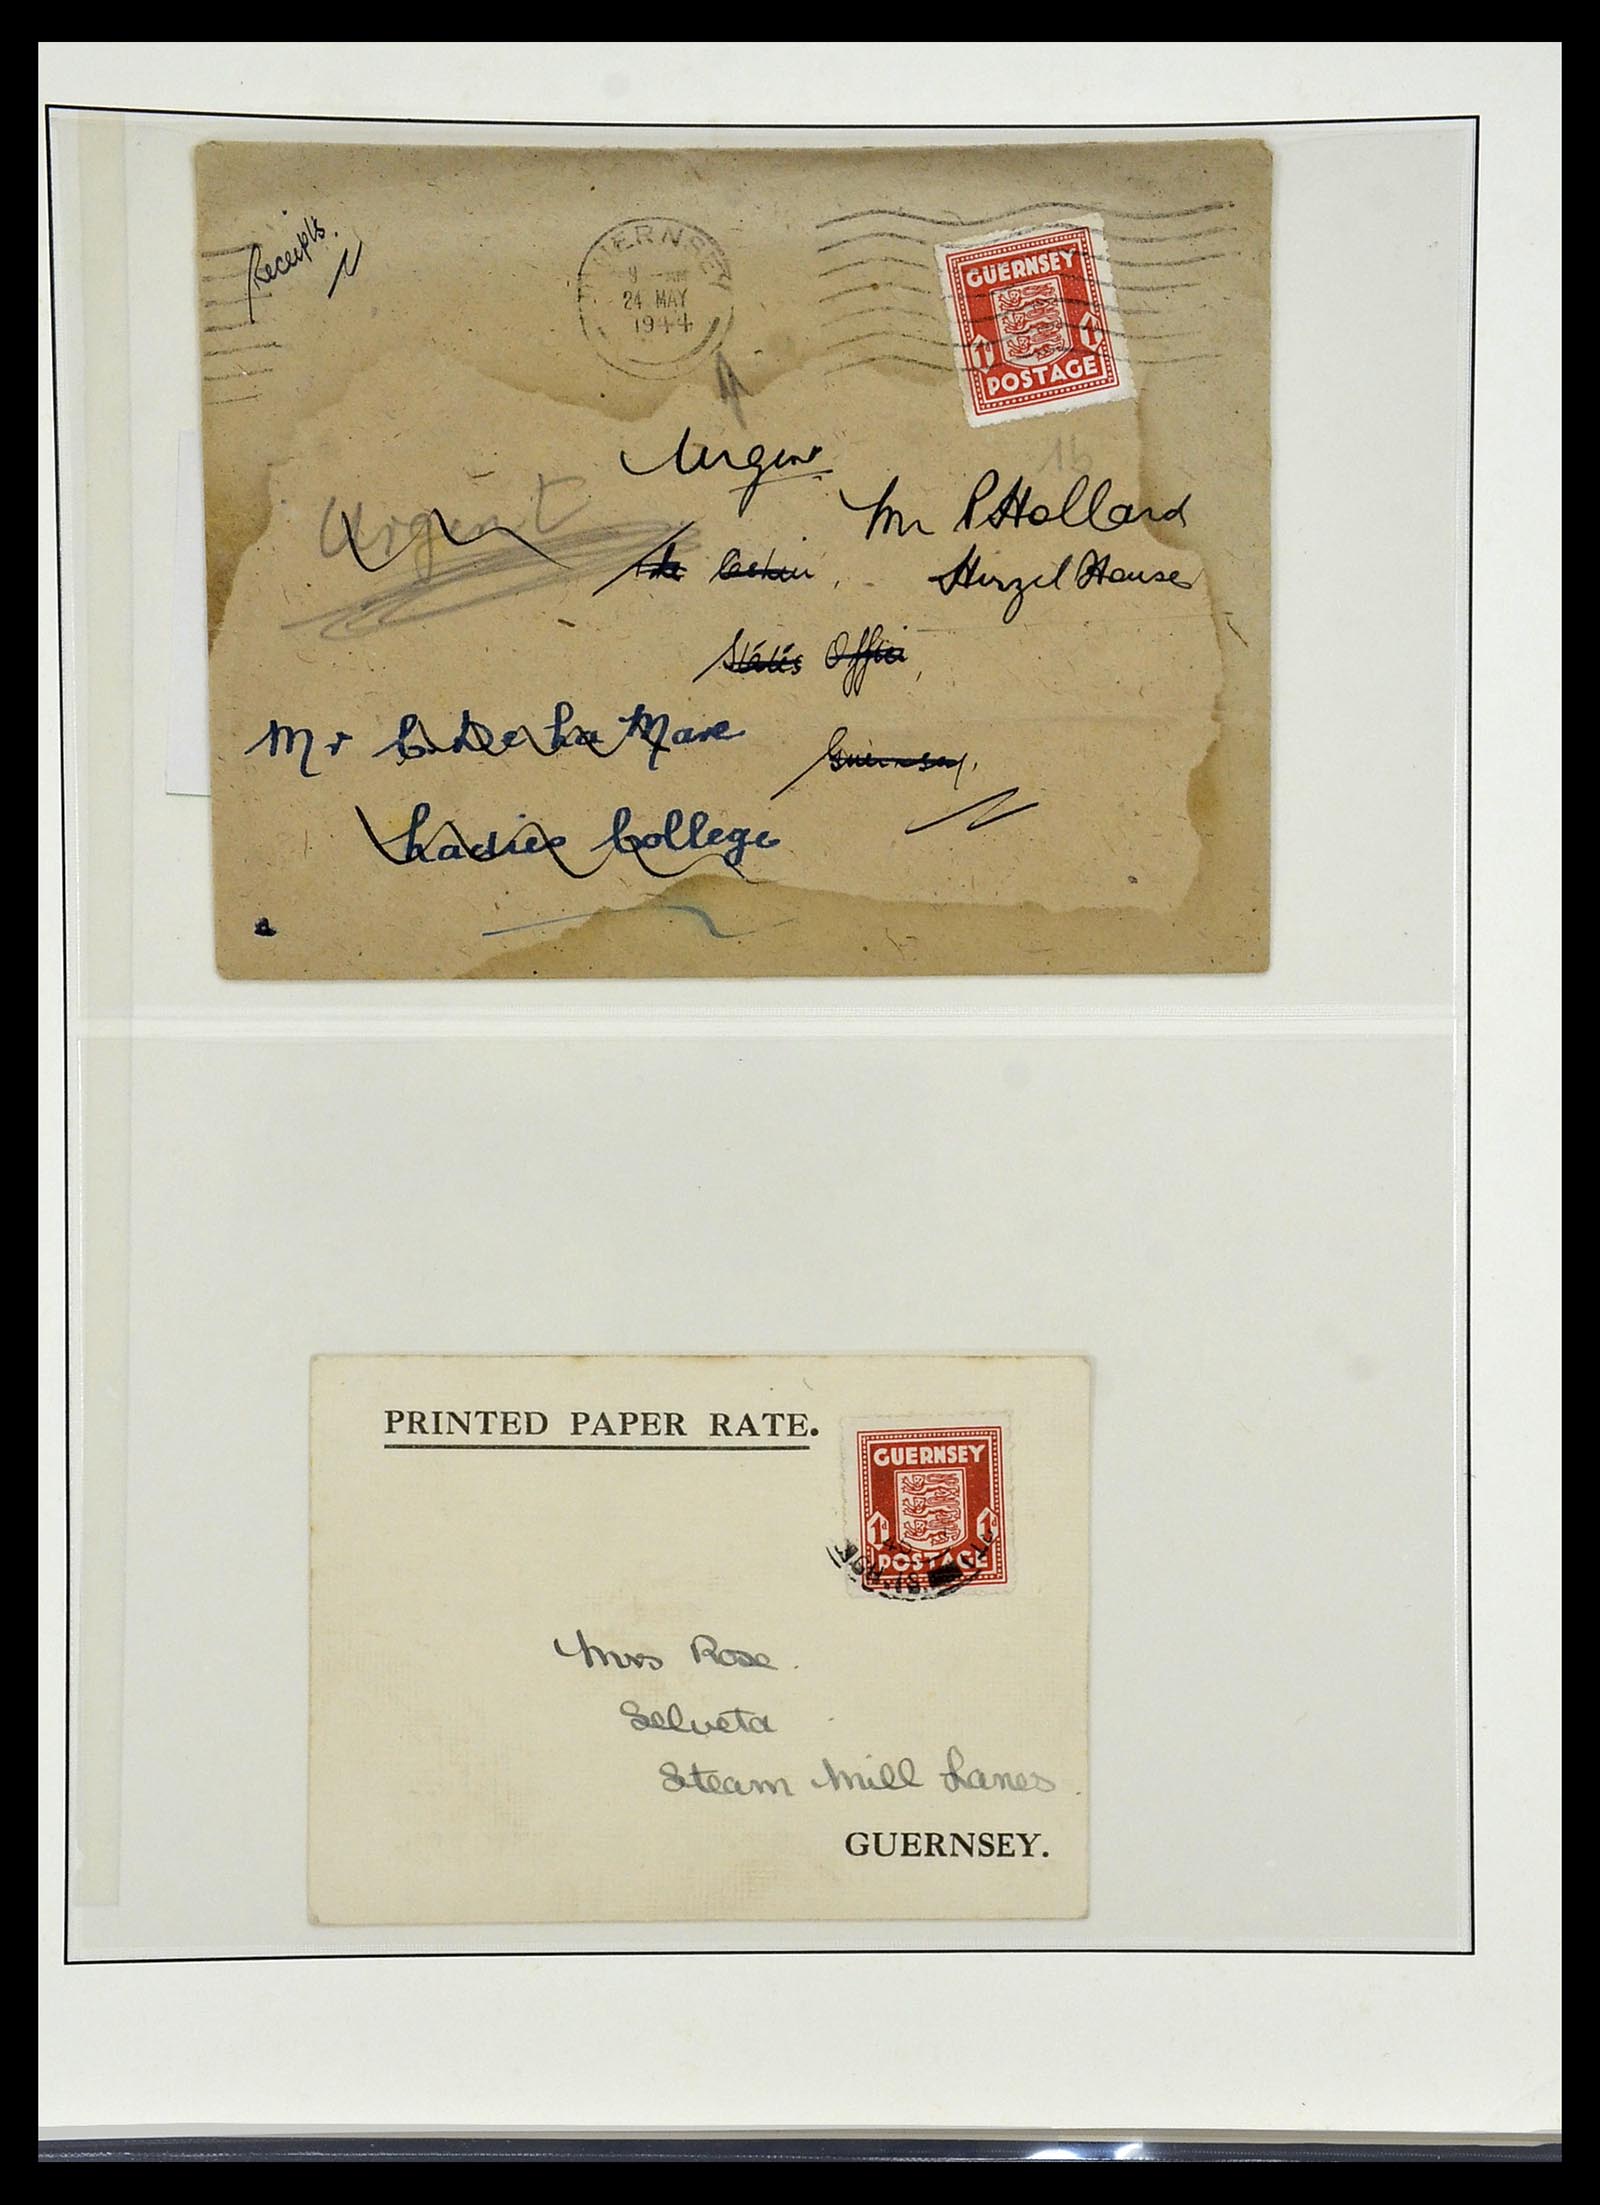 Receipts.
GUERNSEY
9 - AM
24 MAY
1944
GUERNSEY
1D 1D
POSTAGE
Urgent
1b
Urgent
Mr P Hollard
Hirzel House
States Office,
Mr C. De La Mare
Guernsey.
Ladies College
PRINTED PAPER RATE.
GUERNSEY
1D 1D
POSTAGE
Mrs Rose.
Selveta
Steam Mill Lanes.
GUERNSEY.